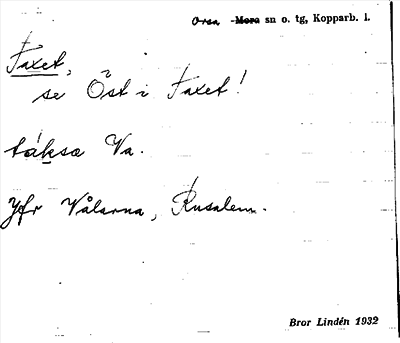 Orsa - Mora sn o. tg, Kopparb. l.
Faxet,
se Öst i Faxet!
táksæ Va.
Jfr Vålarna, Rusalem.
Bror Lindén 1932